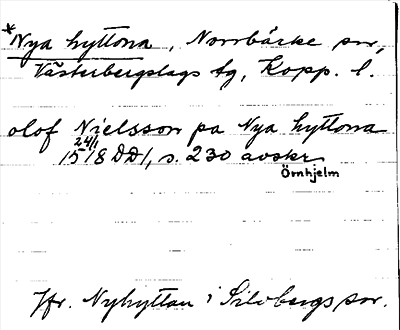 *Nya hyttona, Norrbärke sn,
Västerbergslags tg, Kopp. l.
olof Nielsson pa Nya hyttona
24/1
1518 DD1, s. 230 avskr.
Örnhjelm
Jfr. Nyhyttan i Silvbergs sn.